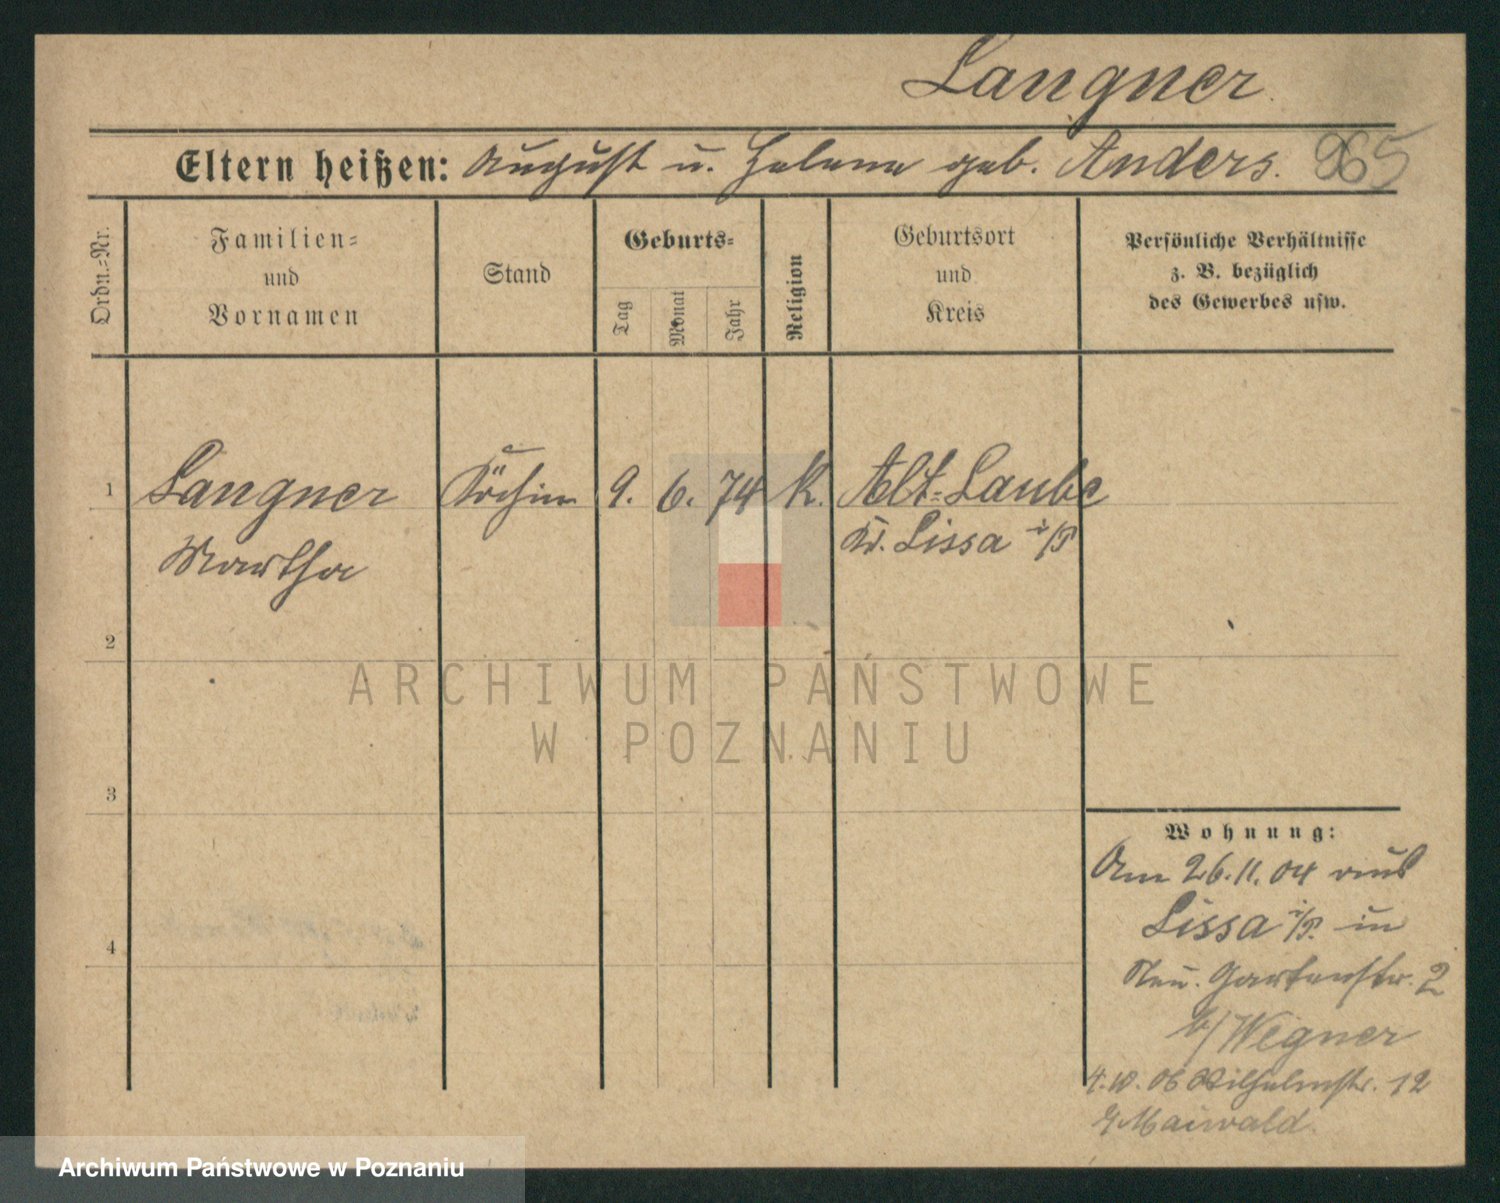 Langner.
Eltern heißen: August u. Helene geb. Anders. 965
Ordn.-Nr.
Familien-
und
Vornamen
Stand
Geburts-
Tag
Monat
Jahr
Religion
Geburtsort
und
Kreis
Persönliche Verhältnisse
z. B. bezüglich
des Gewerbes usw.
1 Langner Köchin 9. 6. 74 K. Alt-Laube
Martha Kr. Lissa i/P
2
ARCHIWUM PAŃSTWOWE
W POZNANIU
3
Wohnung:
Am 26.11.04 aus
Lissa i/P. in
4
Neu. Gartenstr. 2
b/ Wegner
4.10.06 Wilhelmstr. 12
Maiwald.
Archiwum Państwowe w Poznaniu